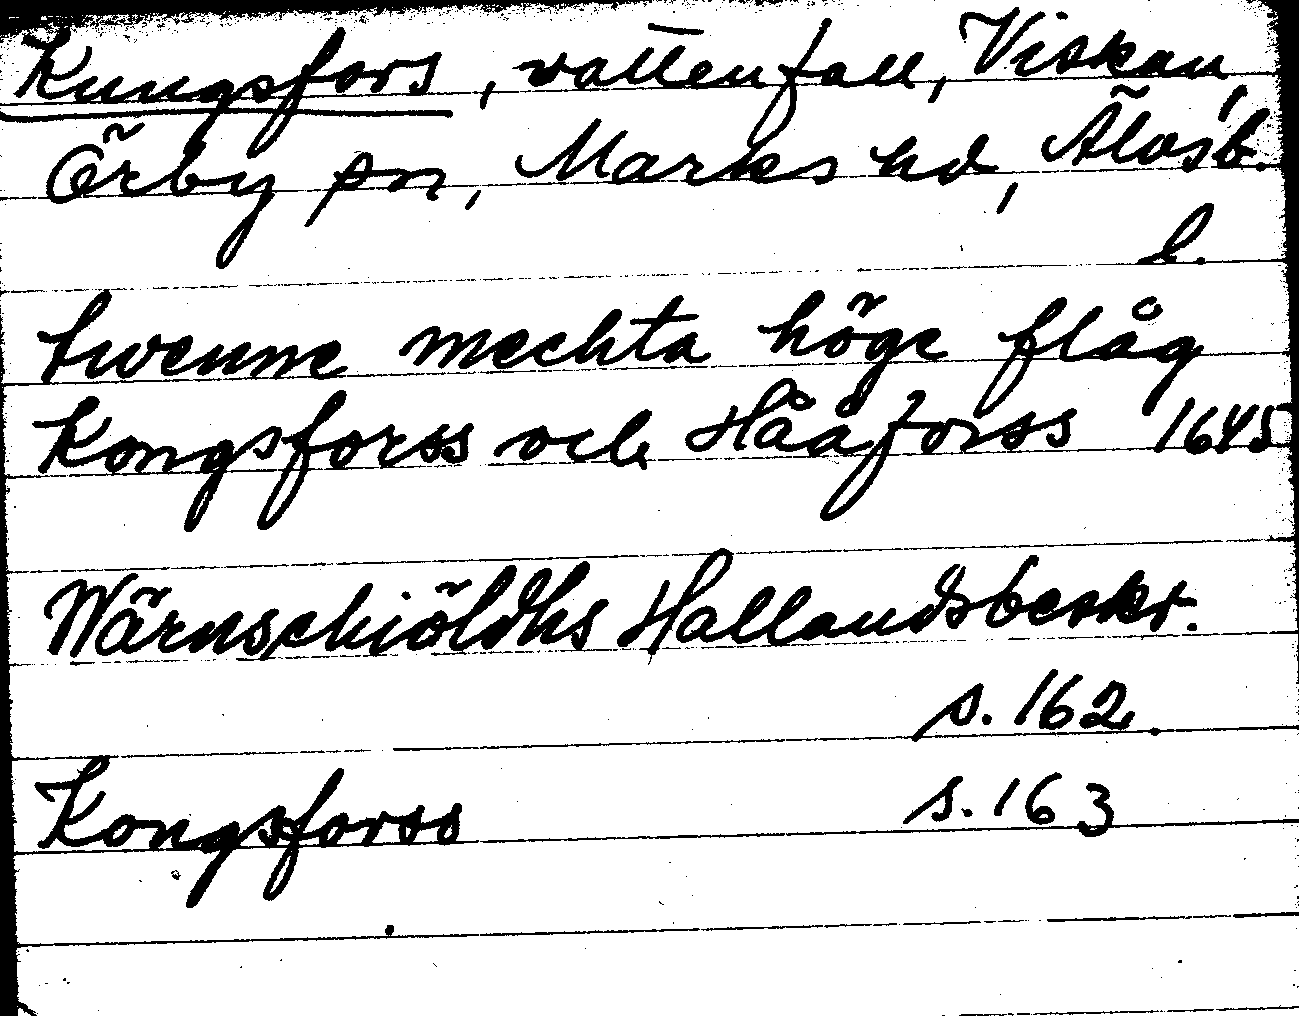 Kungsfors, vattenfall, Viskan,
Örby sn, Marks hd, Älvsb.
l.
twenne mechta höge flåg
Kongsforss och Hååforss 1645
Wärnschiöldhs Hallandsbeskr.
s. 162.
Kongsforss s. 163